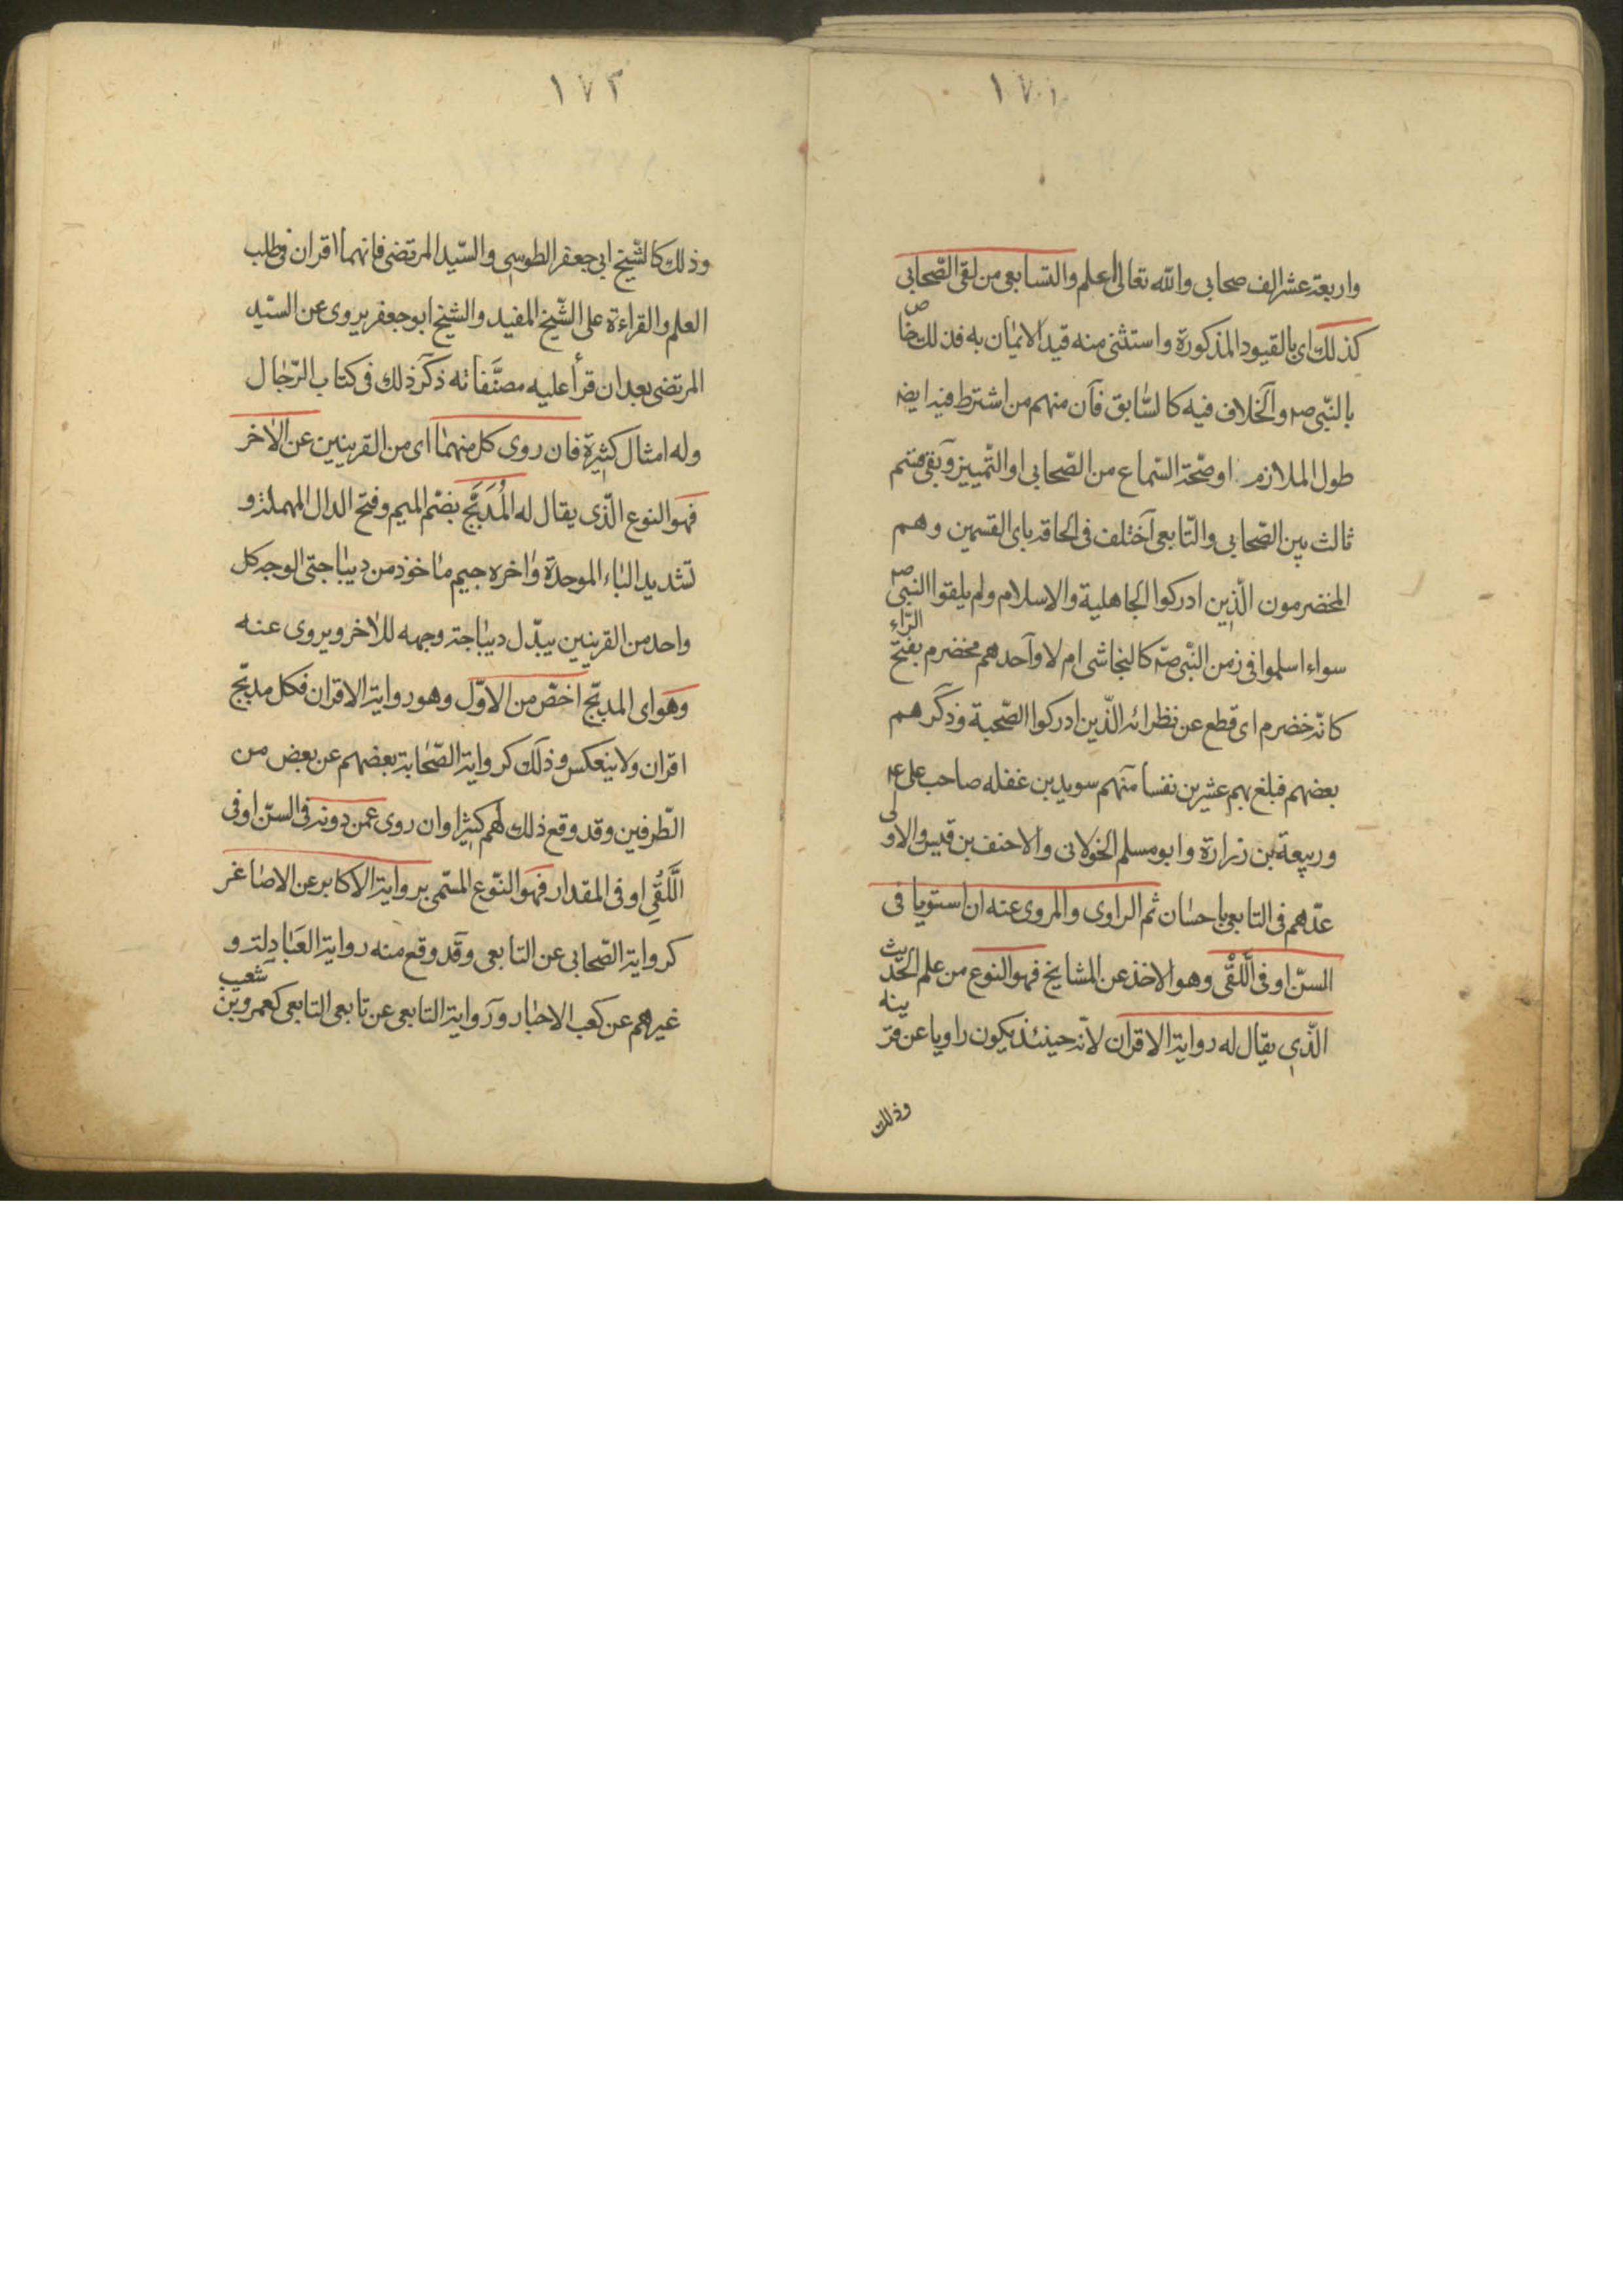 ١٧١
واربعة عشر الف صحابى والله تعالى اعلم والتابعى من لقى الصّحابى
كذلك اى بالقيود المذكورة واستثنى منه قيد الايمان به فذلك خاص
بالنّبى ص والخلاف فيه كالسّابق فان منهم من اشترط فيه ايضه
طول الملازمة او صحّة السّماع من الصّحابى او التّمييز وبقى قسم
ثالث بين الصّحابى والتّابعى اختلف فى الحاقه باى القسمين وهم
المخضرمون الّذين ادركوا الجاهلية والاسلام ولم يلقوا النبى ص
سواء اسلموا فى زمن النّبى ص كالنجاشى ام لا واحدهم مخضرم بفتح الرّاء
كانّه خضرم اى قطع عن نظرائه الّذين ادركوا الصّحبة وذكرهم
بعضهم فبلغ بهم عشرين نفسا منهم سويد بن غفله صاحب على ع
وربيعة بن زرارة وابو مسلم الخولانى والاحنف بن قيس والاولى
عدّهم فى التابعى باحسان ثم الراوى والمروى عنه ان استويا فى
السنّ او فى اللّقى وهو الاخذ عن المشايخ فهو النوع من علم الحديث
الّذى يقال له رواية الاقران لانّه حينئذ يكون راويا عن قرينه
وذلك
١٧٢
وذلك كالشّيخ ابى جعفر الطوسى والسّيد المرتضى فانهما اقران فى طلب
العلم والقراءة على الشّيخ المفيد والشيخ ابو جعفر يروى عن السّيد
المرتضى بعد ان قرأ عليه مصنَّفاته ذكر ذلك فى كتاب الرّجال
وله امثال كثيرة فان روى كل منهما اى من القرينين عن الاخر
فهو النوع الّذى يقال له المُدَبَّج بضمّ الميم وفتح الدال المهملة و
تشديد الباء الموحدة واخره جيم ماخوذ من ديباجتى الوجه كل
واحد من القرينين يبدّل ديباجة وجهه للاخر ويروى عنه
وهو اى المدبّج اخصّ من الاوّل وهو رواية الاقران فكل مدبّج
اقران ولا ينعكس وذلك كرواية الصّحابة بعضهم عن بعض من
الطّرفين وقد وقع ذلك لهم كثيرا وان روى عمن دونه فى السنّ او فى
اللُّقِى او فى المقدار فهو النّوع المسّمى برواية الاكابر عن الاصاغر
كرواية الصّحابى عن التابعى وقد وقع منه رواية العَبادِلة و
غيرهم عن كعب الاحبار ورواية التابعى عن تابعى التابعى كعمرو بن شعيب